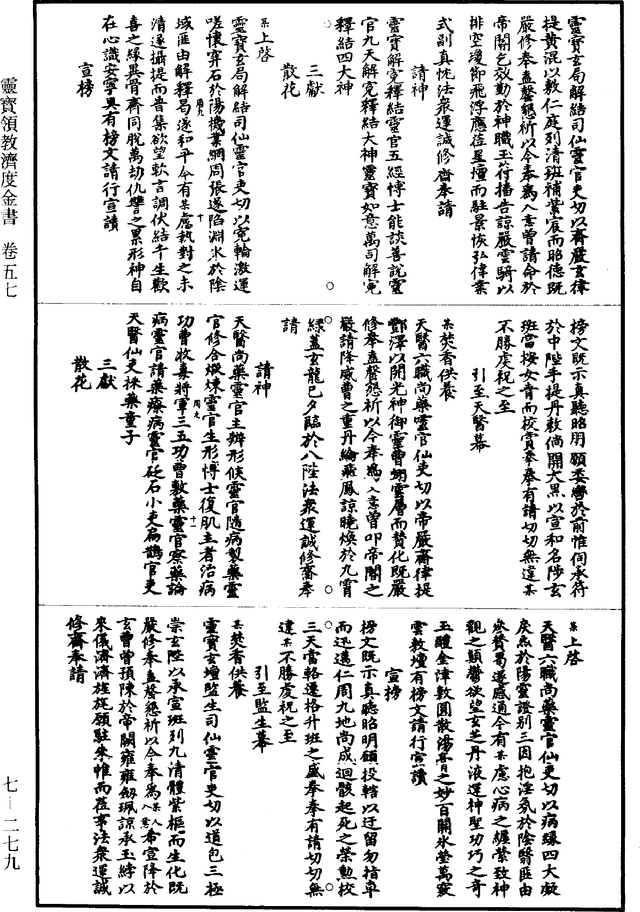 靈寶玄局解結司仙靈官吏切以齋嚴玄律
提黃混以敷仁庭列清班補紫宸而昭德既
嚴修奉盍罄懇祈以今奉為入意曾請命於
帝閽乞效勤於神職玉符播告諒嚴雲騎以
排空瓊節飛浮應莅星壇而駐景恢弘偉業
式副真忱法眾運誠修齋奉請
請神
靈寶解冤釋結靈官五經博士能談善說靈
官九天解冤釋結大神靈寶如意萬司解冤
釋結四大神
三獻
散花
某上啓
靈寶玄局解結司仙靈官吏切以冤輪激運
嗟懷寃石於陽機業網周張遂陷淵氷於陰
域匪由解釋曷遂和平今有某慮執對之未
清遂攝提而普集欲望軟言調伏結千生歡
喜之緣異骨齊同脫萬劫仇讐之累形神自
在心識安寧具有榜文請行宣讀
宣榜
榜文既示真聽昭用願委轡於前惟伺承符
於中陛手提丹敕倘開大黑以宣和名陟玄
班當按女青而校賞拳拳有請切切無違某
不勝虔祝之至
引至天醫幕
某焚香供養
天醫六職尚藥靈官仙吏切以帝嚴齋律提
酆澤以開光神御靈曹翊雲層而贊化既嚴
修奉盍罄懇祈以今奉為入意曾叩帝閽之
嚴請降威曹之重丹綸飛鳳諒曉煥於九霄
綠蓋玄龍已夕臨於八陛法眾運誠修齋奉
請
請神
天醫尚藥靈官主辨形候靈官隨病製藥靈
官修合煅煉靈官生形博士復肌主者治病
功曹收毒將軍三五功曹敷藥靈官察藥論
病靈官請藥療病靈官砭石小吏扁鵲官吏
天醫仙吏採藥童子
三獻
散花
某上啓
天醫六職尚藥靈官仙吏切以病緣四大凝
矣炁於陽靈證別三因抱淫氛於陰翳匪由
參贊曷遂感通今有某慮心病之纏縈致神
觀之顛瞀欲望玄芝丹液運神聖功巧之奇
玉醴金津敷圓散湯膏之妙百關氷瑩萬竅
雲敷壇有榜文請行宣讀
宣榜
榜文既示真聽昭明願投轄以迂留勿指車
而迅邁仁周九地尚成迴骸起死之榮勳校
三天當輅遷格升班之盛拳拳有請切切無
違某不勝虔祝之至
引至監生幕
某焚香供養
靈寶玄壇監生司仙靈官吏切以道包三極
崇玄陛以承宣班列九清體紫樞而生化既
嚴修奉盍罄懇祈以今奉為某入意希宣降於
玄曹曾預陳於帝闕雍雍劒珮諒承玉綍以
來儀濟濟旌旄願駐朱帷而莅事法眾運誠
修齋奉請
靈寶領教濟度金書 卷五七
七—二七九